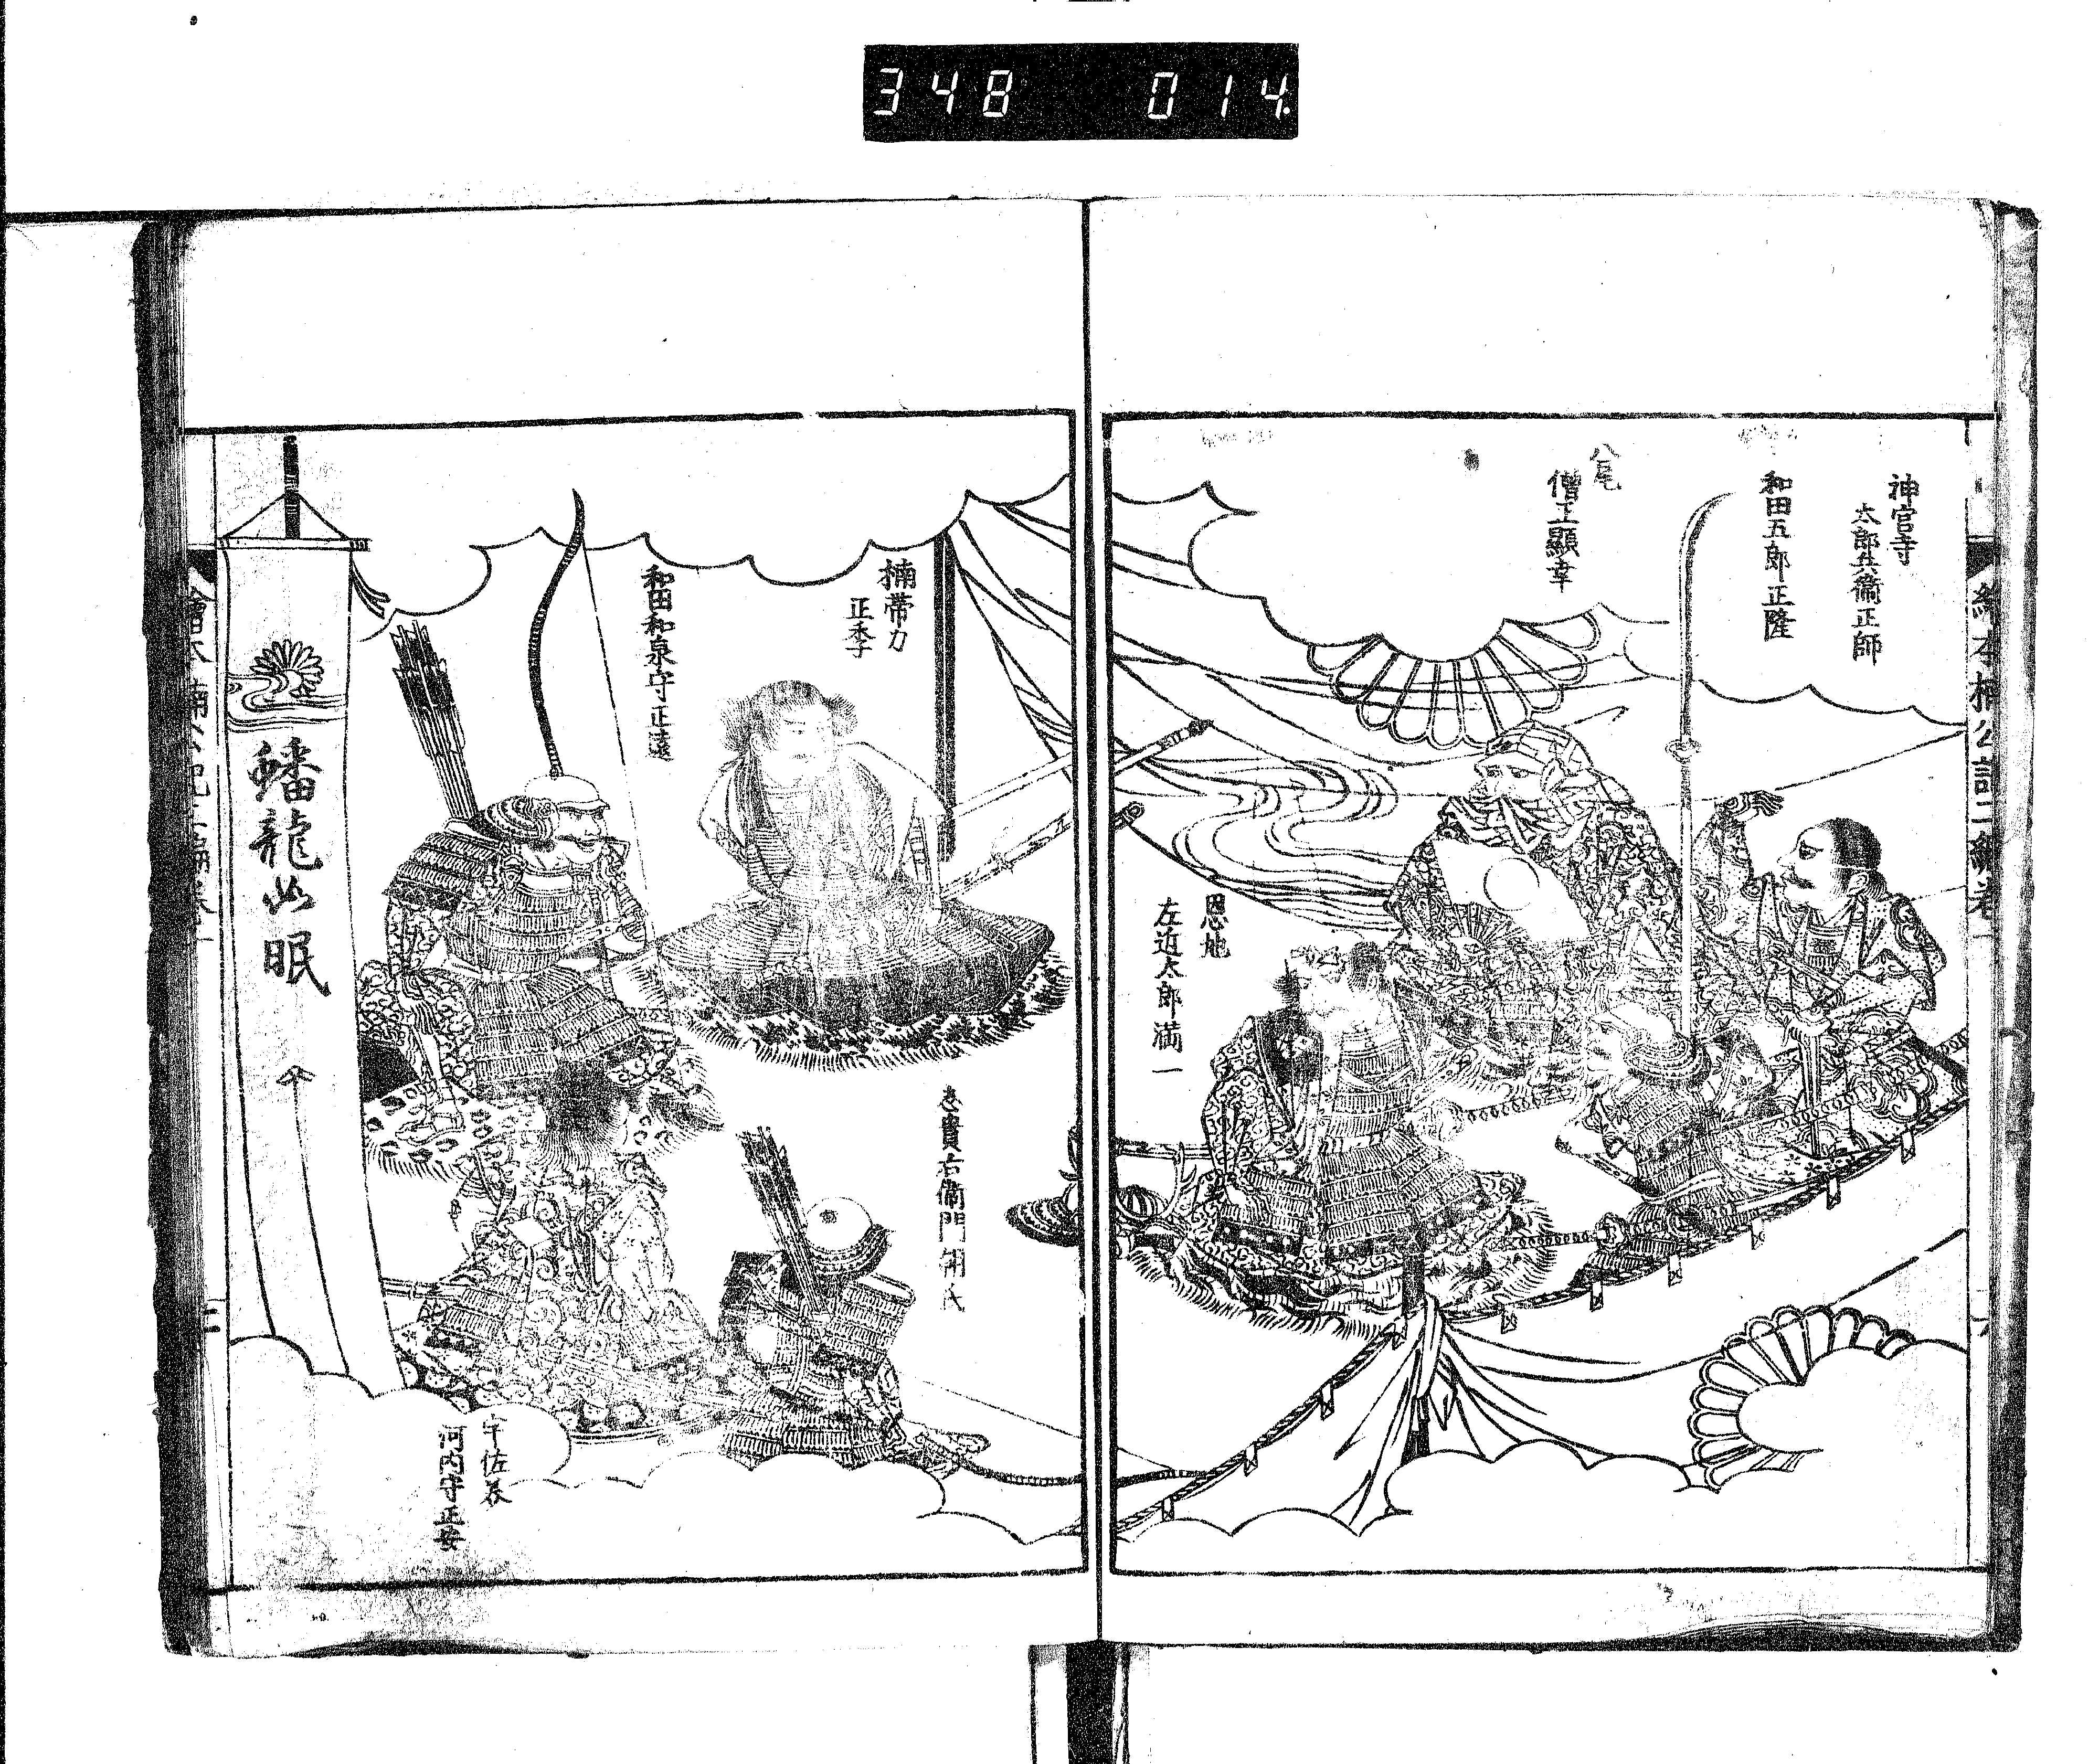 348 014
神宮寺
太郎兵衛正師
和田五郎正隆
八尾
僧正顕幸
恩地
左近太郎満一
楠帯刀
正季
和田和泉守正遠
志貴右衛門朝氏
宇佐美
河内守正安
蟠龍此眠
繪本楠公記二編巻一